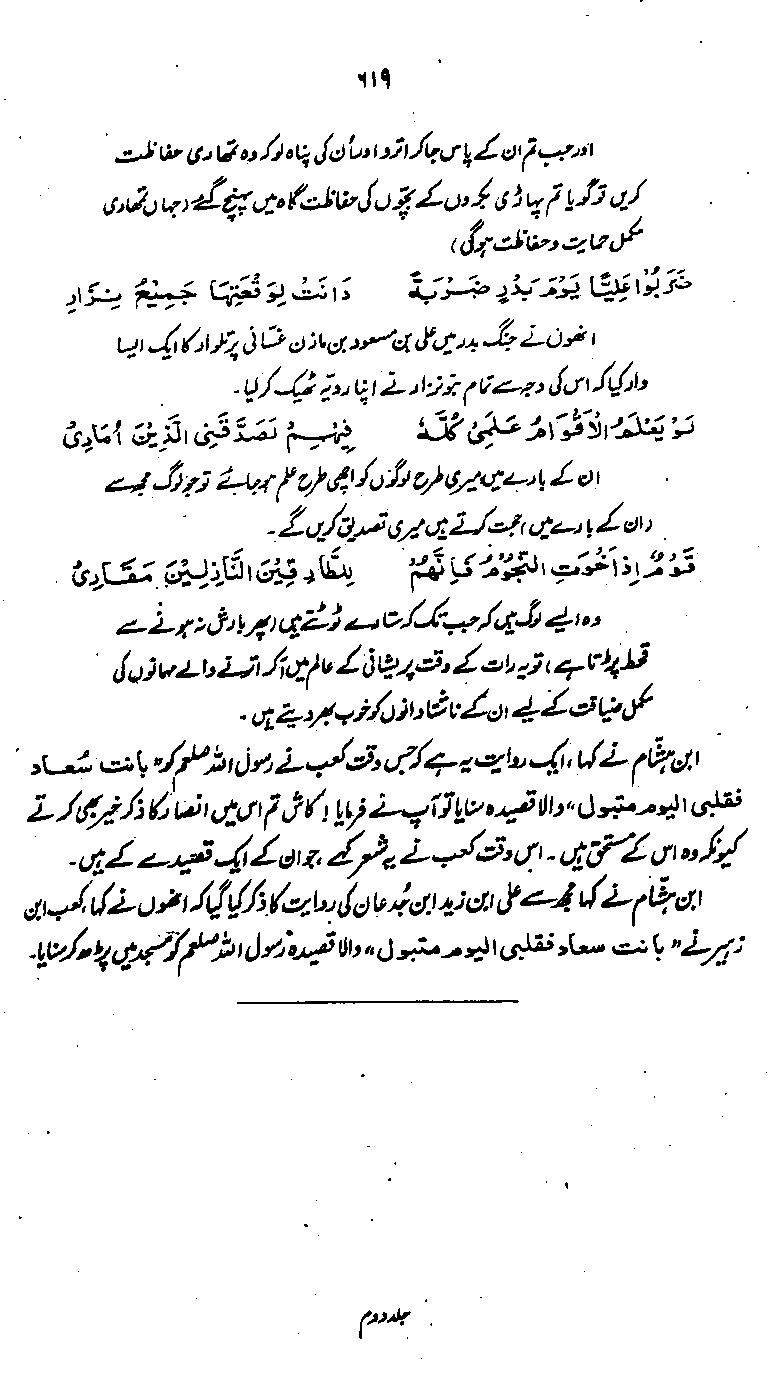 ۶۱۹
اور جب تم ان کے پاس جا کر اترو اور اُن کی پناہ لو کہ وہ تمھاری حفاظت
کریں تو گویا تم پہاڑی بکروں کے بچوں کی حفاظت گاہ میں پہنچ گئے (جہاں تمھاری
مکمل حمایت و حفاظت ہوگی)
ضَرَبُوْا عَلِیًّا یَوْمَ بَدْرٍ ضَرْبَۃً دَانَتْ لِوَقْعَتِہَا جَمِیْعُ نِزَارِ
انھوں نے جنگ بدر میں علی بن مسعود بن مازن غسانی پر تلوار کا ایک ایسا
وار کیا کہ اس کی وجہ سے تمام بنو نزار نے اپنا رویّہ ٹھیک کر لیا۔
لَوْ یَعْلَمُ الْاَقْوَامُ عِلْمِیْ کُلَّہٗ فِیْہِمْ لَصَدَّقَنِی الَّذِیْنَ اُمَارِیْ
ان کے بارے میں میری طرح لوگوں کو اچھی طرح علم ہو جائے تو جو لوگ مجھ سے
(ان کے بارے میں) حجت کرتے ہیں میری تصدیق کریں گے۔
قَوْمٌ اِذَا خَوَتِ النُّجُوْمُ فَاِنَّھُمْ لِلطَّارِقِیْنَ النَّازِلِیْنَ مَقَارِیْ
وہ ایسے لوگ ہیں کہ جب تک کہ ستارے ٹوٹتے ہیں (پھر بارش نہ ہونے سے
قحط پڑتا ہے) تو یہ رات کے وقت پریشانی کے عالم میں آکر اترنے والے مہمانوں کی
مکمل ضیافت کے لیے ان کے ناشتا دانوں کو خوب بھر دیتے ہیں۔
ابن ہشّام نے کہا، ایک روایت یہ ہے کہ جس وقت کعب نے رسول اللہ صلعم کو "بانت سُعاد
فقلبی الیوم متبول" والا قصیدہ سنایا تو آپ نے فرمایا! کاش تم اس میں انصار کا ذکر خیر بھی کرتے
کیونکہ وہ اس کے مستحق ہیں۔ اس وقت کعب نے یہ شعر کہے، جو ان کے ایک قصیدے کے ہیں۔
ابن ہشّام نے کہا مجھ سے علی ابن زید ابن جُدعان کی روایت کا ذکر کیا گیا کہ انھوں نے کہا، کعب ابن
زہیر نے "بانت سعاد فقلبی الیوم متبول" والا قصیدہ رسول اللہ صلعم کو مسجد میں پڑھ کر سنایا۔
جلد دوم